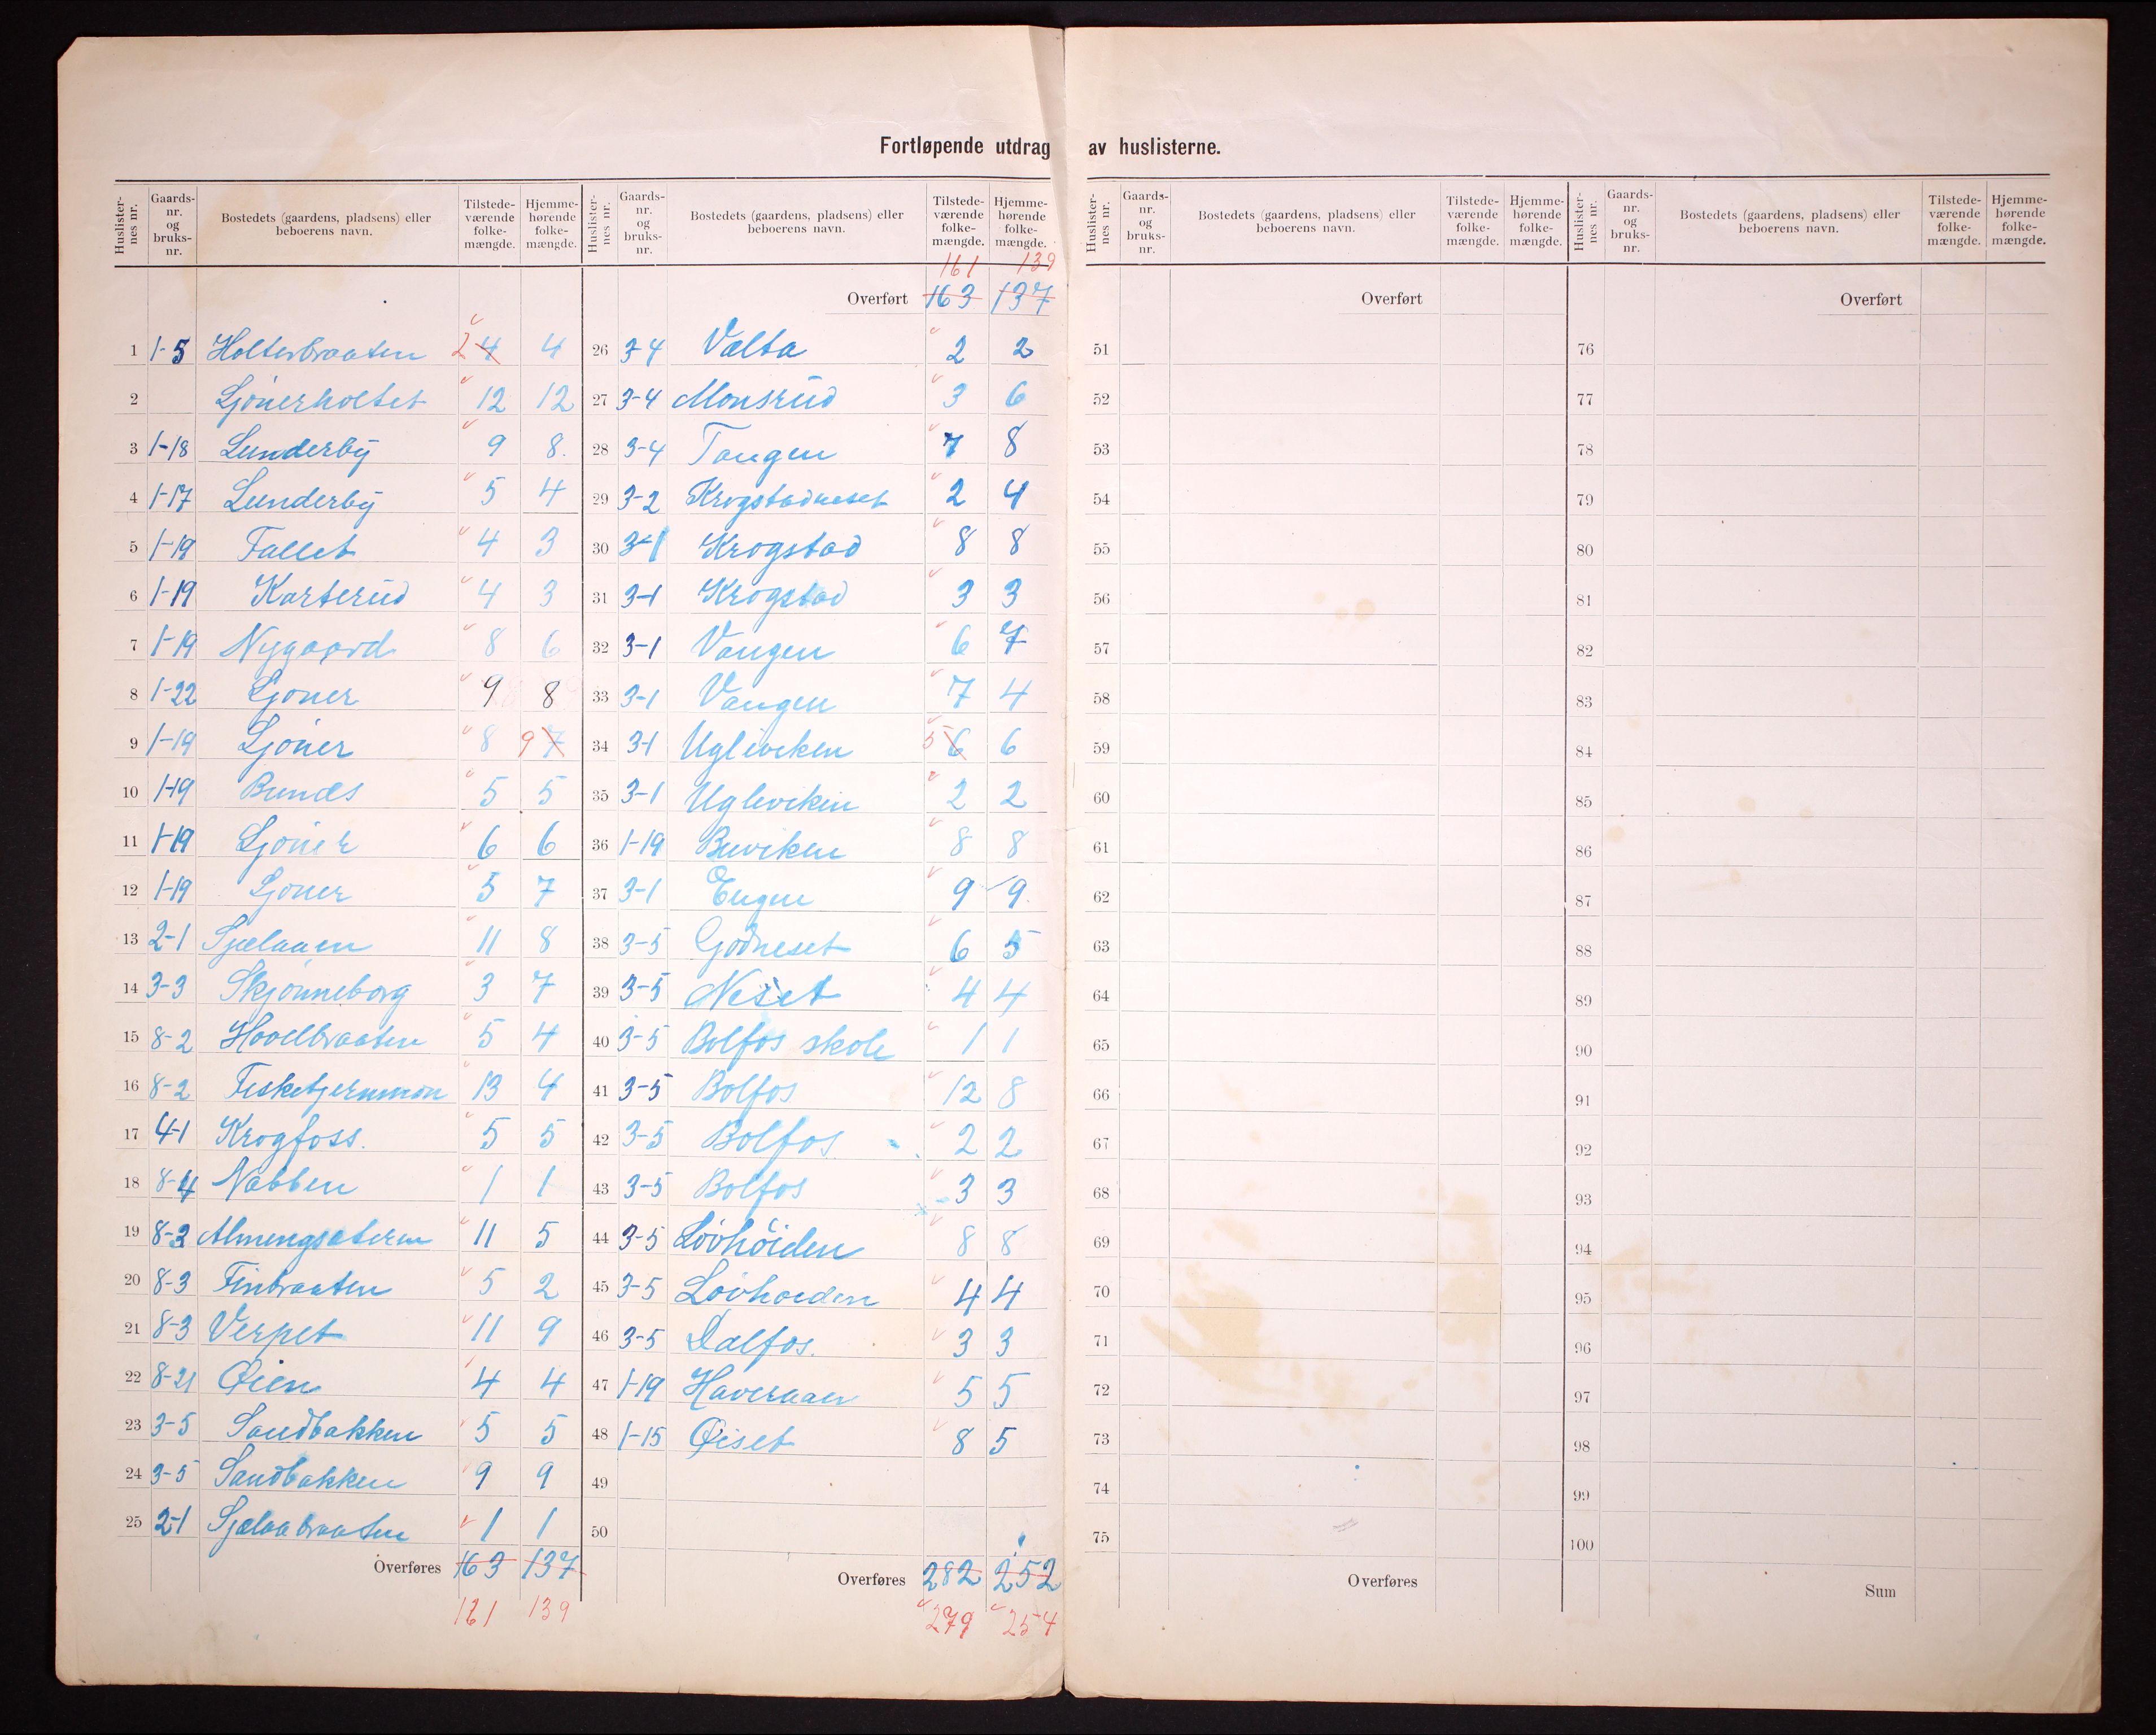 Fortløpende utdrag av huslisterne.
Huslister-nes nr. Gaards-nr. og bruks-nr. Bostedets (gaardens, pladsens) eller beboerens navn. Tilstede-værende folke-mængde. Hjemme-hørende folke-mængde.
1 1-5 Holterbraaten 4 2 4
2 Ljönerholtet 12 12
3 1-18 Lunderby 9 8.
4 1-17 Lunderby 5 4
5 1-19 Fallet 4 3
6 1-19 Karterud 4 3
7 1-19 Nygaard 8 6
8 1-22 Ljöner 9 8
9 1-19 Ljöner 8 9 7
10 1-19 Bunds 5 5
11 1-19 Ljöner 6 6
12 1-19 Ljöner 5 7
13 2-1 Sjælaaen 11 8
14 3-3 Skjönneborg 3 7
15 8-2 Hovelbraaten 5 4
16 8-2 Fisketjernmoen 13 4
17 4-1 Krogfoss. 5 5
18 8-4 Nabben 1 1
19 8-3 11 5
20 8-3 Finbraaten 5 2
21 8-3 Verpet 11 9
22 8-21 Øien 4 4
23 3-5 Sandbakken 5 5
24 3-5 Sandbakken 9 9
25 2-1 Sjælaabraaten 1 1
Overføres 163 137
161 139
Huslister-nes nr. Gaards-nr. og bruks-nr. Bostedets (gaardens, pladsens) eller beboerens navn. Tilstede-værende folke-mængde. Hjemme-hørende folke-mængde.
161 139
Overført 163 137
26 3-4 Valta 2 2
27 3-4 Monsrud 3 6
28 3-4 Tangen 7 8
29 3-2 Krogstadneset 2 4
30 3-1 Krogstad 8 8
31 3-1 Krogstad 3 3
32 3-1 Vangen 6 7
33 3-1 Vangen 7 4
34 3-1 Ugleviken 5 6 6
35 3-1 Ugleviken 2 2
36 1-19 Buviken 8 8
37 3-1 Engen 9 9
38 3-5 Godneset 6 5
39 3-5 Neset 4 4
40 3-5 Bolfos skole 1 1
41 3-5 Bolfos 12 8
42 3-5 Bolfos 2 2
43 3-5 Bolfos 3 3
44 3-5 Lövhöiden 8 8
45 3-5 Lövhöiden 4 4
46 3-5 Dalfos. 3 3
47 1-19 Haveraaen 5 5
48 1-15 Øiset 8 5
49
50
Overføres 282 252
279 254
Huslister-nes nr. Gaards-nr. og bruks-nr. Bostedets (gaardens, pladsens) eller beboerens navn. Tilstede-værende folke-mængde. Hjemme-hørende folke-mængde.
Overført
51
52
53
54
55
56
57
58
59
60
61
62
63
64
65
66
67
68
69
70
71
72
73
74
75
Overføres
Huslister-nes nr. Gaards-nr. og bruks-nr. Bostedets (gaardens, pladsens) eller beboerens navn. Tilstede-værende folke-mængde. Hjemme-hørende folke-mængde.
Overført
76
77
78
79
80
81
82
83
84
85
86
87
88
89
90
91
92
93
94
95
96
97
98
99
100
Sum